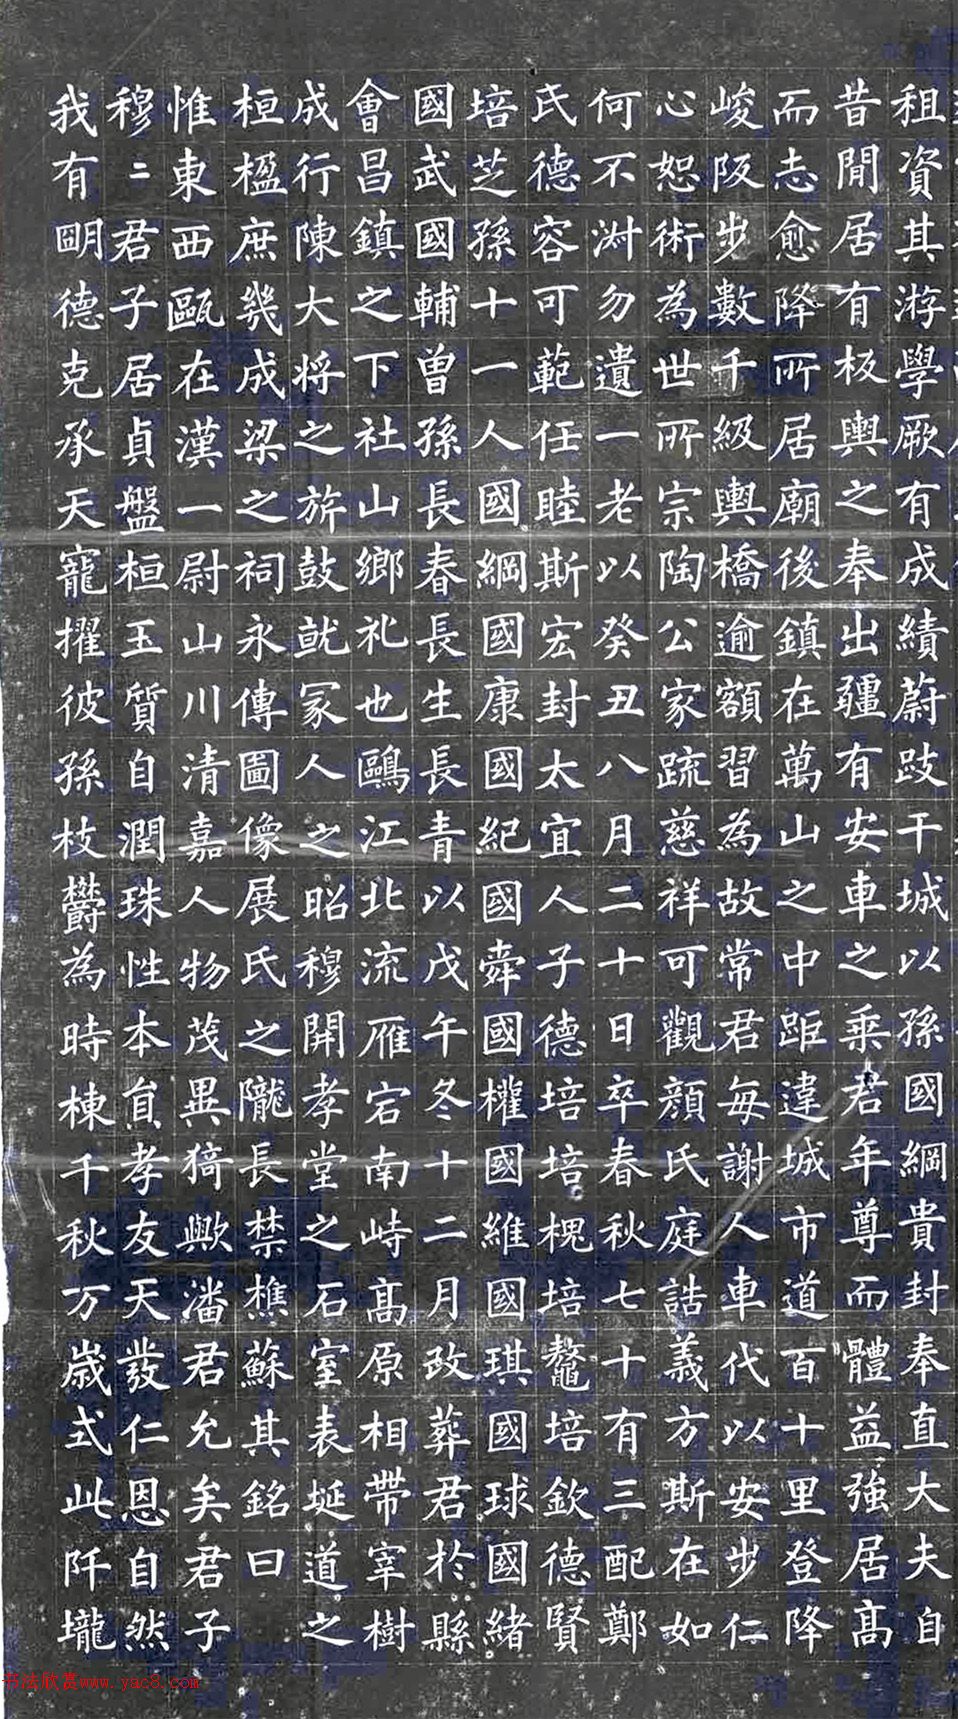 租資其游學厥有成績蔚跂干城以孫國綱貴封奉直大夫自
昔閒居有板輿之奉出疆有安車之乘君年尊而體益強居高
而志愈降所居廟後鎮在萬山之中距違城市道百十里登降
峻阪步數千級輿橋逾額習為故常君每謝人車代以安步仁
心恕術為世所宗陶公家疏慈祥可觀顏氏庭誥義方斯在如
何不淑勿遺一老以癸丑八月二十日卒春秋七十有三配鄭
氏德容可範任睦斯宏封太宜人子德培培槐培鼇培欽德賢
培芝孫十一人國綱國康國紀國舜國權國維國琪國球國緒
國武國輔曾孫長春長生長青以戊午冬十二月改葬君於縣
會昌鎮之下社山鄉礼也鷗江北流雁宕南峙高原相帶宰樹
成行陳大将之旂鼓就冢人之昭穆開孝堂之石室表埏道之
桓楹庶幾成梁之祠永傳圖像展氏之隴長禁樵蘇其銘曰
惟東西甌在漢一尉山川清嘉人物茂異猗歟潘君允矣君子
穆二君子居貞盤桓玉質自潤珠性本員孝友天發仁恩自然
我有明德克承天寵擢彼孫枝欝為時棟千秋万歲式此阡壠
书法欣赏www.yac8.com